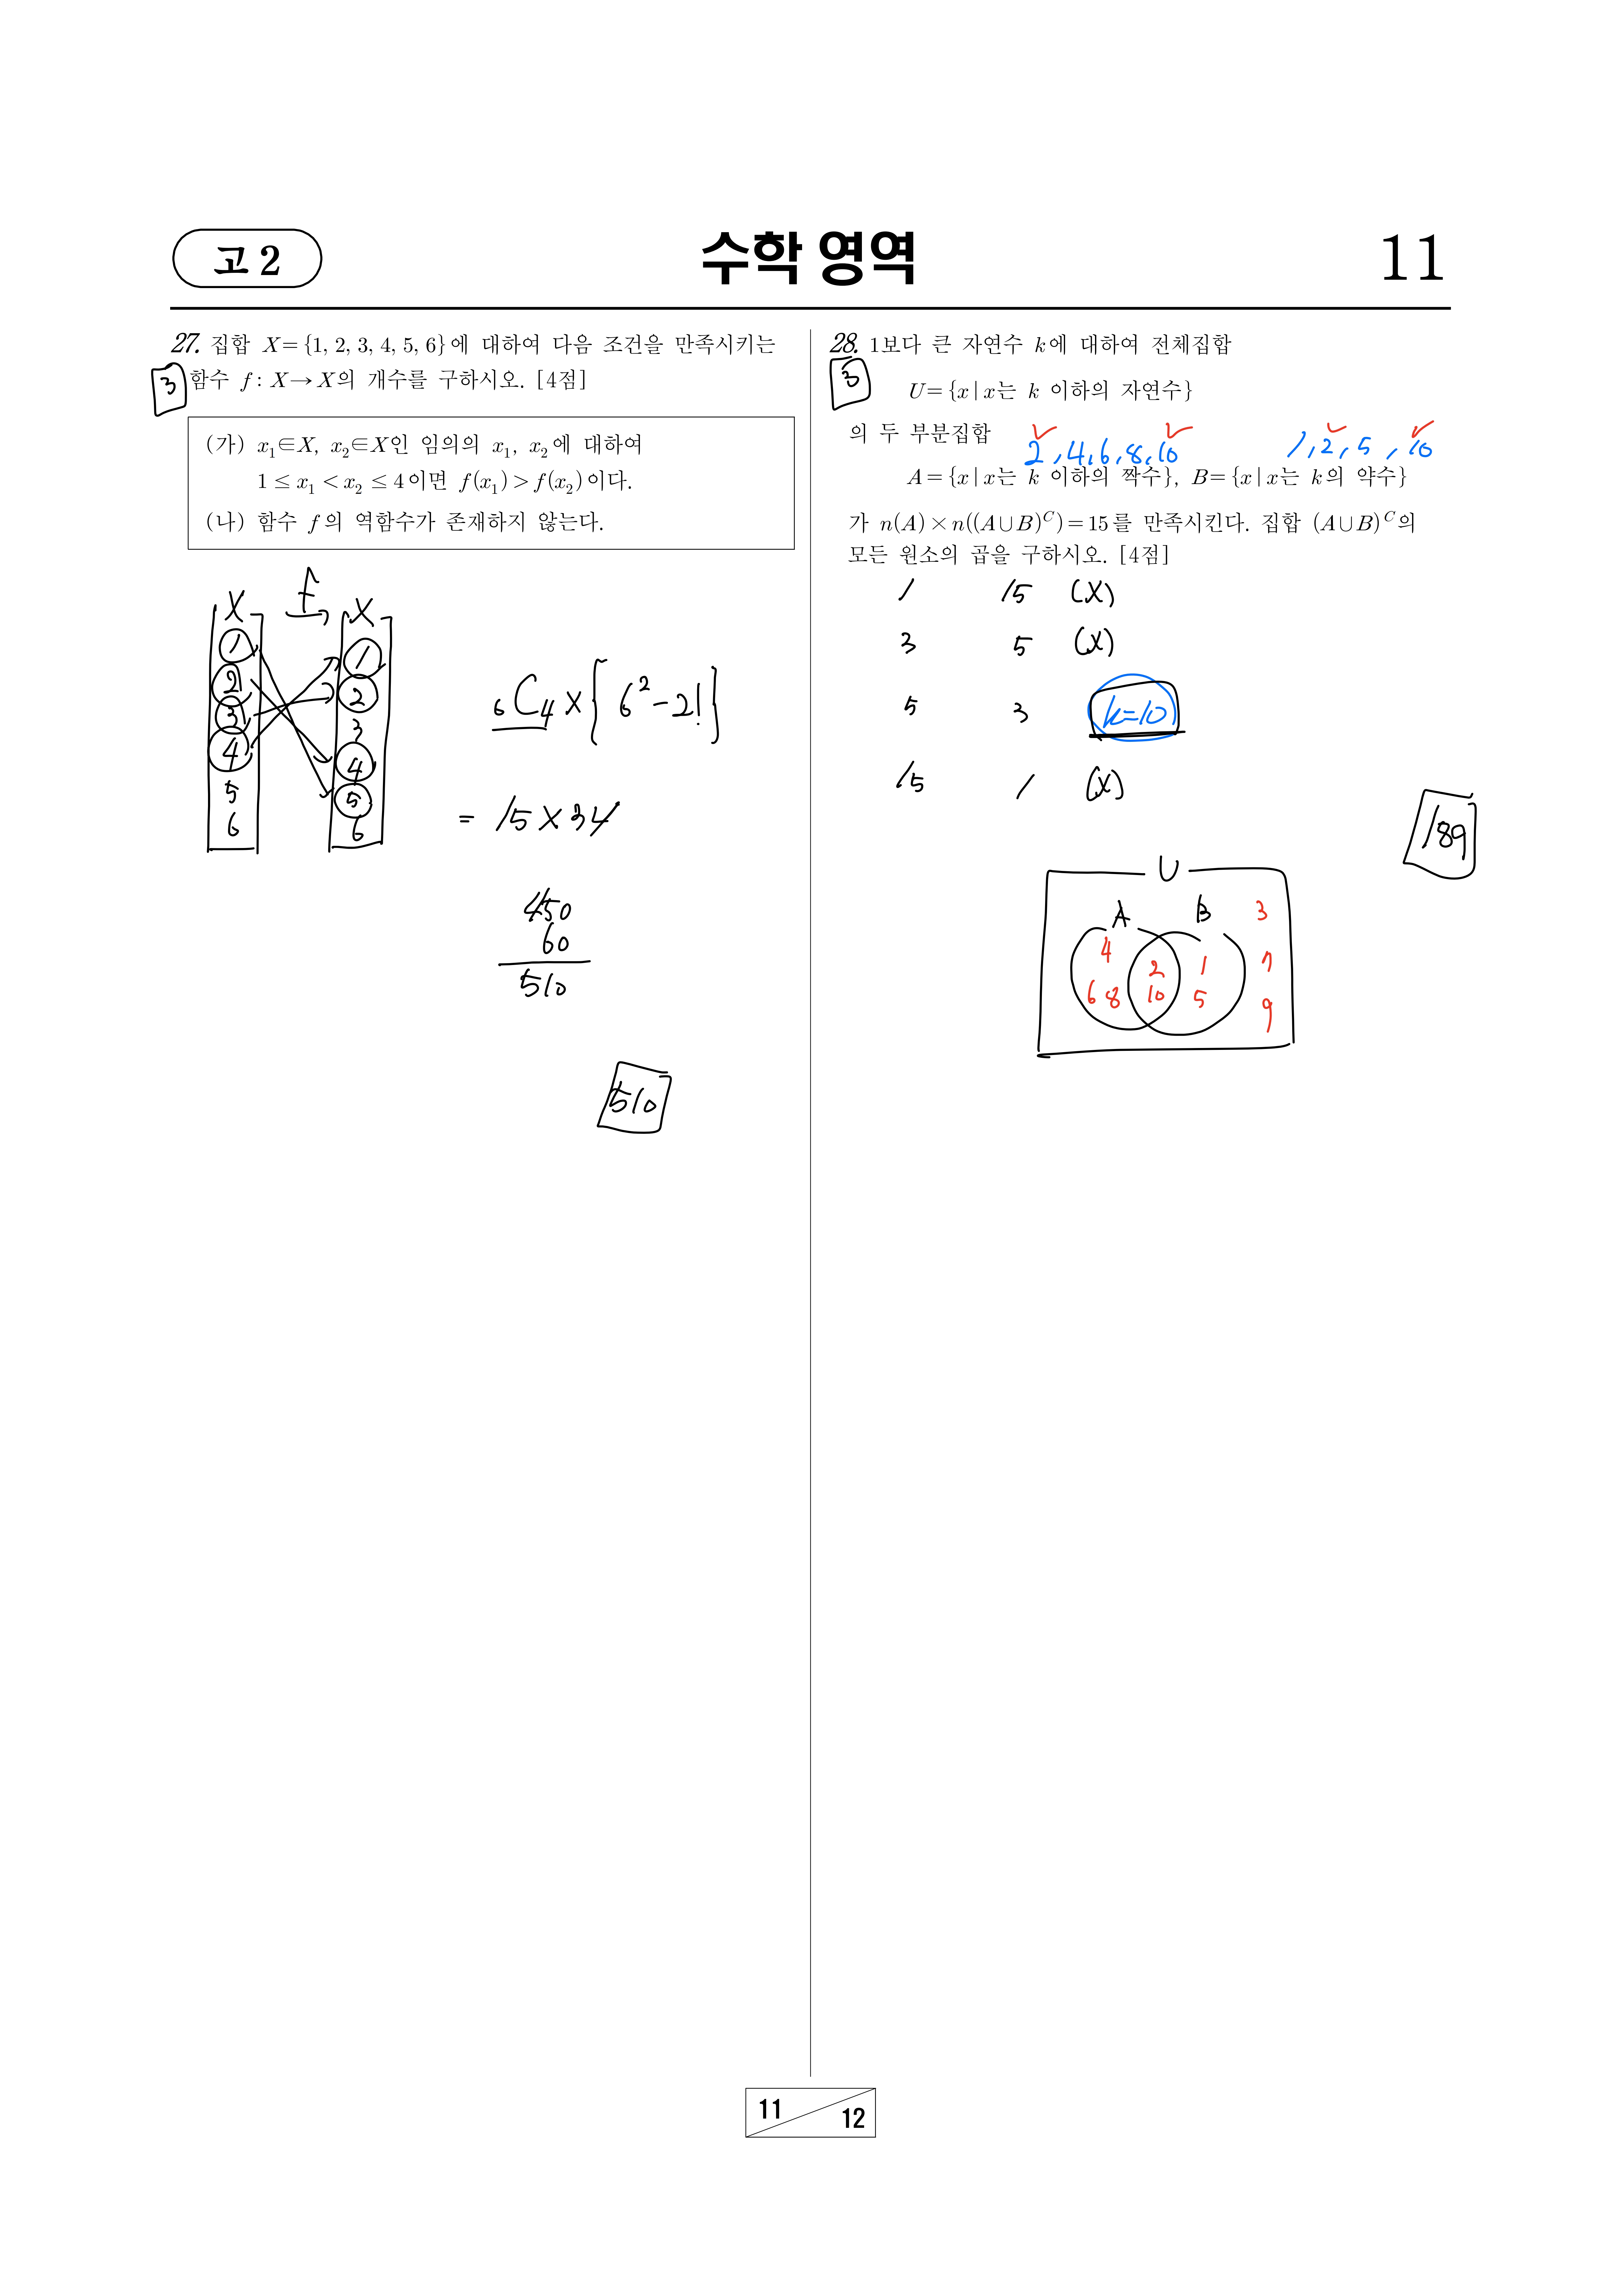 고 2
수학 영역
11
27. 집합 X={1, 2, 3, 4, 5, 6}에 대하여 다음 조건을 만족시키는
3
함수 f : X→X의 개수를 구하시오. [4점]
(가) x₁∈X, x₂∈X인 임의의 x₁, x₂에 대하여
1 ≤ x₁ < x₂ ≤ 4이면 f(x₁) > f(x₂)이다.
(나) 함수 f의 역함수가 존재하지 않는다.
X f X
1 1
2 2
3 3
4 4
5 5
6 6
₆C₄ × { 6² − 2! }
= 15 × 34
450
60
510
510
28. 1보다 큰 자연수 k에 대하여 전체집합
3
U={x | x는 k 이하의 자연수}
의 두 부분집합
2, 4, 6, 8, 10 1, 2, 5, 10
A={x | x는 k 이하의 짝수}, B={x | x는 k의 약수}
가 n(A)×n((A∪B)^C)=15를 만족시킨다. 집합 (A∪B)^C의
모든 원소의 곱을 구하시오. [4점]
1 15 (X)
3 5 (X)
5 3 k=10
15 1 (X)
189
U
A B 3
4 2 1 7
6 8 10 5 9
11
12